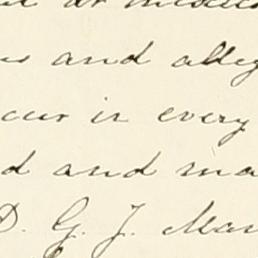 and alleg
cur in every
d and ma
D. G. J. Mar